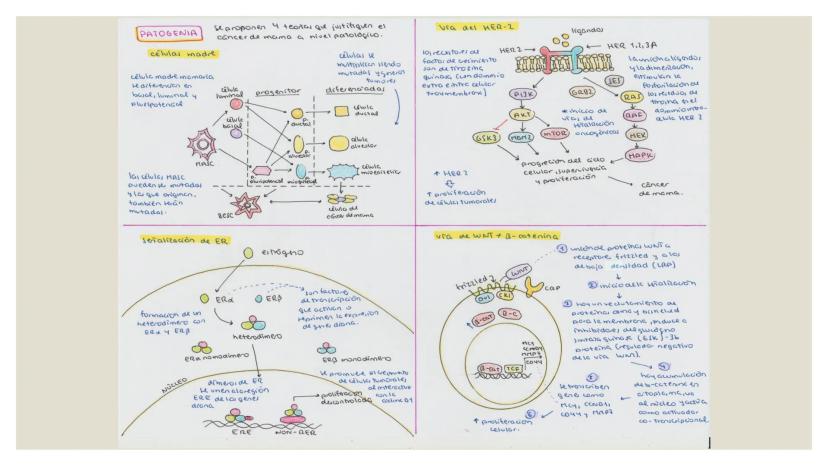 PATOGENIA
se proponen 4 teorías que justifiquen el
cáncer de mama a nivel patológico.
células madre
célula madre mamaria
se diferencia en
basal, luminal y
pluripotencial
célula
luminal
célula
basal
MASC
progenitor
diferenciadas
ductal
alveolar
pluripotencial
mioepitelial
célula
ductal
célula
alveolar
célula
mioepitelial
células se
multiplican siendo
mutadas y generan
tumores
las células MASC
pueden se mutadas
y las que originen,
también serán
mutadas.
BCSC
célula de
cáncer de mama
Vía del HER-2
ligandos
HER2
HER 1,2,3,4
los receptores de
factor de crecimiento
son de tirosina
quinasa
PI3K
GRB2
SES
RAS
AKT
RAF
GSK3
MDM2
mTOR
MEK
MAPK
* inicio de
vías de
señalización
oncogénicas
la unión a ligandos
y la dimerización,
estimulan la
fosforilación de
los residuos de
tirosina en el
dominio intra-
celular HER2
progresión del ciclo
celular, supervivencia
y proliferación
cáncer
de mama.
↑ HER2
↑ proliferación
de células tumorales
señalización de ER
estrógeno
ERα
ERβ
son factores
de transcripción
que activan o
reprimen la expresión
de genes diana.
formación de un
heterodímero con
ERα y ERβ
heterodímero
ERα monodímero
ERβ monodímero
NÚCLEO
dímeros de ER
se unen a la región
ERE de los genes
diana
se promueve el crecimiento
de células tumorales
al interactuar
con la
ciclina D1
proliferación
descontrolada
ERE
NON-ERE
vía de WNT + β-catenina
frizzled
WNT
DVL
CK1
CAP
β-cat
β-C
β-cat
TCF
MCY
CCND1
MMP7
CD44
1 unión de proteínas WNT a
receptores frizzled y a los
de baja densidad (LRP)
2 inicio de la señalización
3 hay un reclutamiento de
para la membrana, induce a
inhibidores del glucógeno
sintasa quinasa (GSK)-3b
proteína (regulador negativo
de la vía WNT).
4
hay acumulación
de b-catenina en
citoplasma, va
al núcleo y actúa
como activador
co-transcripcional.
5
se transcriben
genes como
MCY, CCND1,
CD44 y MMP7
6
↑ proliferación
celular.